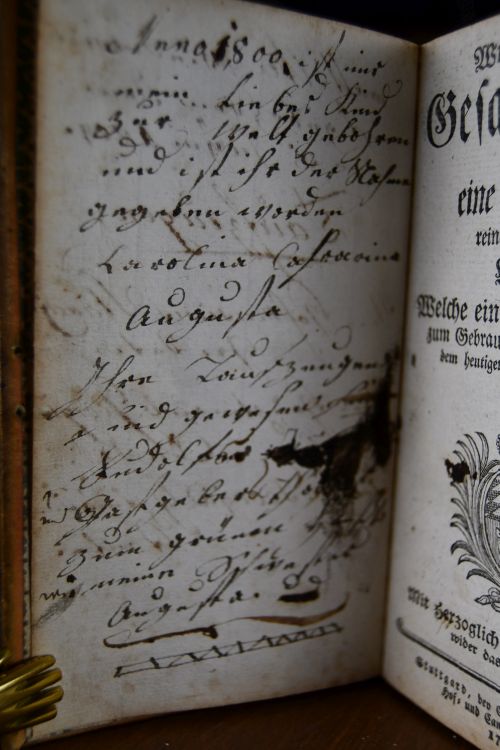 Anno 1800 ist mir
mein liebes Kind
zur Welt gebohren
und ist ihr der Nahme
gegeben worden
Carolina Catharina
Augusta
Ihre Taufzeugen
sind gewesen
Rudolf
und Gastgeber
zum grünen
wie meine Schwester
Augusta.
Gesa
eine
rein
Welche ein
zum Gebrau
dem heutige
Mit Herzoglich
wider da
Stuttgard, den
Hof- und Can